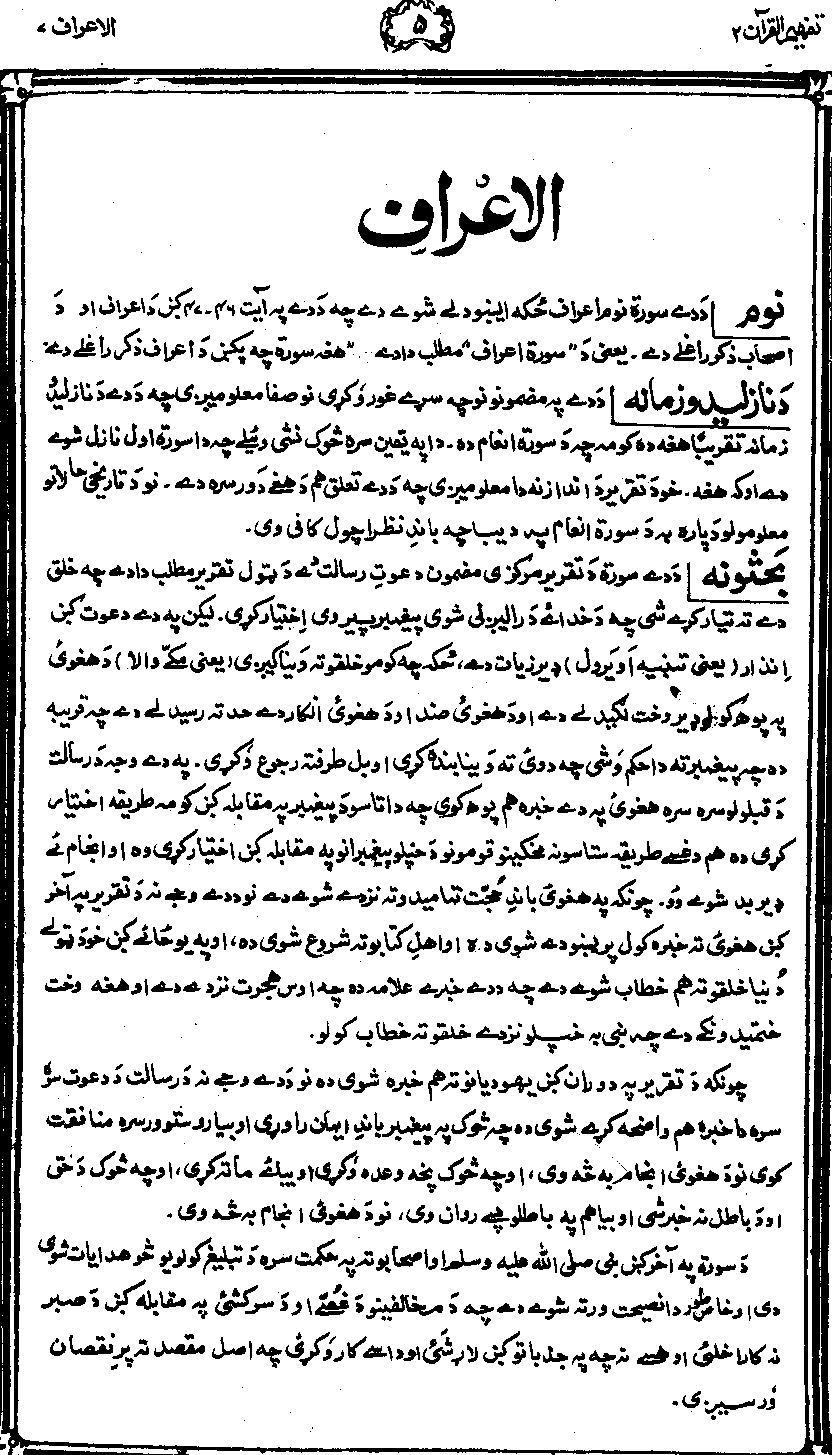 تفهيم القرآن ٢
٥
الاعراف ٧
الاعْراف
نوم دَدے سورة نوم اعراف ځکه ايښودلے شوے دے چه دَدے په آيت ٤٦-٤٧ کښ دَ اعراف او دَ
اصحاب ذکر راغلے دے ۔ يعنى دَ "سورة اعراف" مطلب دادے "هغه سورة چه پکښ دَ اعراف ذکر راغلے دے"
دَ نازليدو زمانه دَدے په مضمونونو چه سړے غور وکړى نو صفا معلوميږى چه دَدے دَ نازليدُ
زمانه تقريباً هغه ده کومه چه دَ سورة انعام ده ۔ دا په يقين سره څوک نشى وئيلے چه دا سورة اول نازل شوے
دے اوکه هغه ۔ خو دَ تقرير دَ اندازنه دا معلوميږى چه دَدے تعلق هم دَ هغے دَور سره دے ۔ نو دَ تاريخى حالاتو
معلومولو دَپاره به دَ سورة انعام په ديباچه باندِ نظر اچول کافى وى.
بحثونه دَدے سورة دَ تقرير مرکزى مضمون دعوتِ رسالت دے دَ ټول تقرير مطلب دادے چه خلق
دے ته تيار کړے شى چه دَ خدائے دَ راليږلى شوى پيغمبر پيروى اِختيار کړى. ليکن په دے دعوت کښ
اِنذار (يعنى تنبيه او يرول) ډير زيات دے، ځکه چه کومو خلقو ته وَينا کيږى (يعنى مکّے والا) دَ هغوىُ
په پوهه کولو ډير وخت لګيدلے دے او دَ هغوىُ ضد او دَ هغوىُ انکار دے حد ته رسيدلے دے چه قريبه
ده چه پيغمبر ته دا حکم وَشى چه دوىُ ته دَ وينا بنده کړى او بل طرف ته رجوع وُکړى ۔ په دے وجه دَ رسالت
دَ قبلولو سره سره هغوىُ په دے خبره هم پوهه کوى چه دا تاسو دَ پيغمبر په مقابله کښ کومه طريقه اختيار
کړى ده هم دغسے طريقه ستاسونه مخکښو قومونو دَ خپلو پيغمبرانو په مقابله کښ اختيار کړى وه او انجام ئے
ډير بد شوے وُو. چونکه په هغوىُ باندِ حُجّت تماميدو ته نزدے شوے دے نو دَدے وجے نه دَ تقرير په آخر
کښ هغوىُ ته خبره کول پريښودے شوى ده او اهلِ کتابو ته شروع شوى ده، او په يو ځائے کښ خو دَ ټولے
دُنيا خلقو ته هم خطاب شوے دے چه دَدے خبرے علامه ده چه اوس هجرت نزدے دے او هغه وخت
ختميدونکے دے چه نبى به خپلو نزدے خلقو ته خطاب کولو.
چونکه دَ تقرير په دوران کښ يهوديانو ته هم خبره شوى ده نو دَدے وجے نه دَ رسالت دَ دعوت سره
سره دا خبره هم واضحه کړے شوى ده چه څوک په پيغمبر باندِ ايمان راوړى او بيا ورستو ورسره منافقت
کوى نو دَ هغوىُ انجام به څه وى، او چه څوک پخه وعده وُکړى او بيائے ماته کړى، او چه څوک دَ حق
او دَ باطل نه خبر شى او بيا هم په باطلو پسے روان وى، نو دَ هغوىُ انجام به څه وى.
دَ سورة په آخر کښ نبى صلى الله عليه وسلم او اصحابو ته په حکمت سره دَ تبليغ کولو يو څو هدايات شوى
دى او خاص طور دا نصيحت ورته شوے دے چه دَ مخالفينو دَ غُصّے او دَ سرکشىُ په مقابله کښ دَ صبر
نه کار اخلىُ او هسے نه چه په جذباتو کښ لاړ شىُ او داسے کار وُکړىُ چه اصل مقصد ته پرِ نقصان
وُرسيږى.